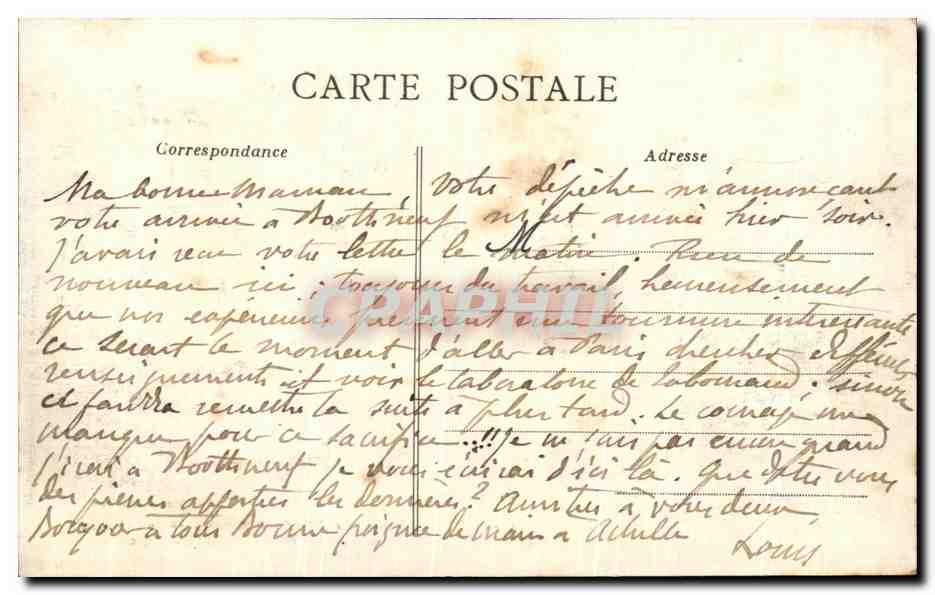 CARTE POSTALE
Correspondance
Adresse
Ma bonne Maman Votre dépêche m'annoncant
votre arrivée à Rothéneuf m'est arrivée hier soir.
J'avais recu votre lettre le Matin. Rien de
nouveau ici; toujours du travail, heureusement
que nos expériences prennent une tournure interessante
ce serait le moment d'aller à Paris chercher
renseignements et voir le laboratoire de sinon
il faudra remettre la suite à plus tard. Le courage me
manque pour ce sacrifice ...!! Je ne sais pas encore quand
j'irai à Rothéneuf je vous écrirai d'ici là. Que dites vous
des pierres apportées les dernières? Amitiés à vous deux
Bonjour à tous Bonne poignée de main à Achille
Louis
CPAPHIL